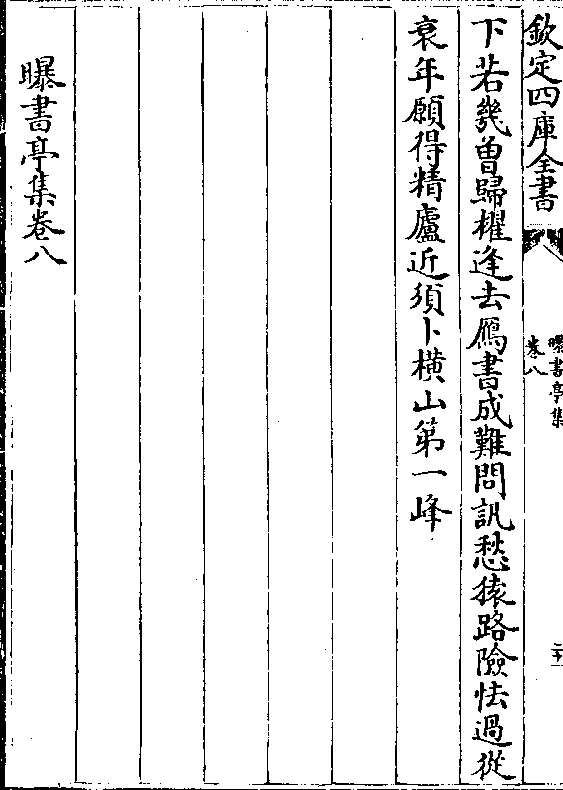 欽定四庫全書
曝書亭集
卷八
下若幾曽歸櫂逢去鴈書成難問訊愁猿路險怯過從
衰年願得精廬近須卜横山第一峰
曝書亭集卷八